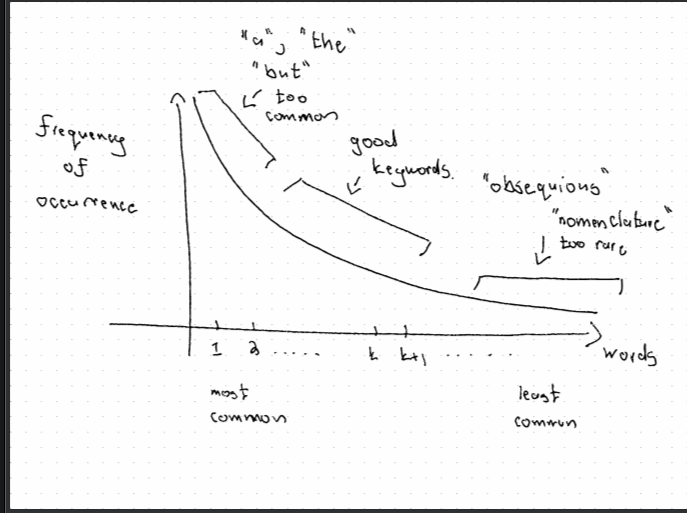 "a", "the"
"but"
too
common
frequency
of
occurrence
good
keywords.
"obsequious"
"nomenclature"
too rare
1 2 ...... k k+1 .......
words
most
common
least
common